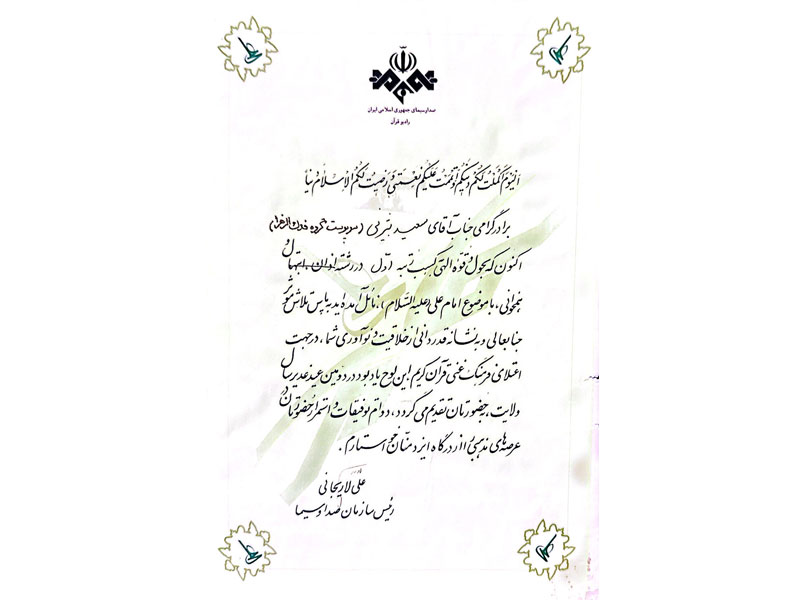 صدا و سیمای جمهوری اسلامی ایران
رادیو قرآن
اَلْیَوْمَ اَکْمَلْتُ لَکُمْ دینَکُمْ وَ اَتْمَمْتُ عَلَیْکُمْ نِعْمَتی وَ رَضیتُ لَکُمُ الْاِسْلامَ دیناً
برادر گرامی جناب آقای سعید تبریزی (سرپرست گروه فدک الزهرا)
اکنون که بحول و قوه الهی کسب رتبه اوّل در رشته اذان، ابتهال و
همخوانی، با موضوع امام علی (علیه السّلام)، نائل آمده‌اید به پاس تلاش موثر
جنابعالی و به نشانه قدردانی از خلاقیت و نوآوری شما، در جهت
اعتلای فرهنگ غنی قرآن کریم این لوح یادبود در دومین عید غدیر سال
ولایت، به حضورتان تقدیم می گردد، دوام توفیقات و استمرار حضورتان در
عرصه‌های مذهبی را از درگاه ایزد منّان خواستارم.
علی لاریجانی
رئیس سازمان صدا و سیما